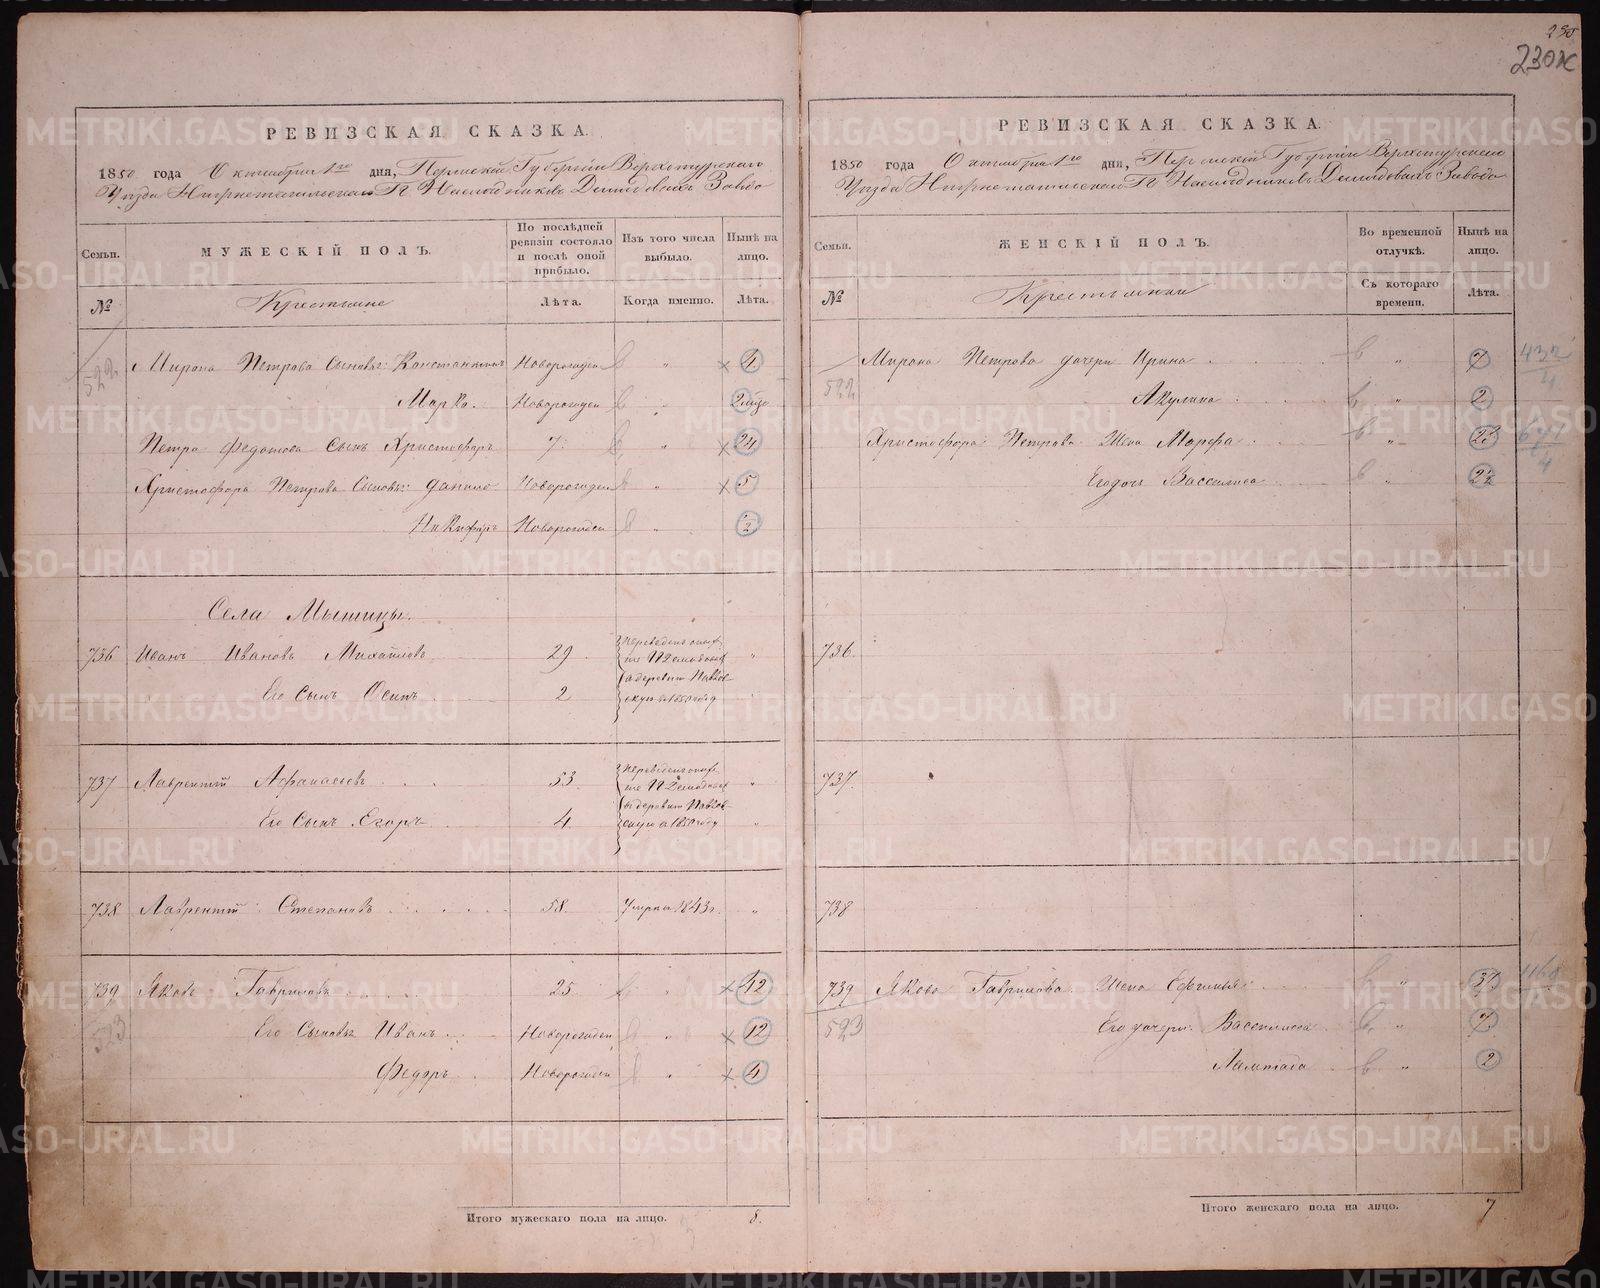 230
230ж
РЕВИЗСКАЯ СКАЗКА.
1850 года Октября 1го дня, Пермской Губернiи Верхотурскаго
Уѣзда Нижнетагильскаго Гг. Наслѣдниковъ Демидовыхъ Завода
Семьи. МУЖЕСКIЙ ПОЛЪ. По послѣдней ревизiи состояло и послѣ оной прибыло. Изъ того числа выбыло. Нынѣ на лицо.
№ Крестьяне Лѣта. Когда именно. Лѣта.
522 Мирона Петрова Сыновья: Константинъ Новорожден " 4
Марко. Новорожден " 2
Петра Федотова Сынъ Христофоръ 7 " 24
Христофора Петрова Сыновья: Данило Новорожден " 5
Никифоръ Новорожден " 2
Села Мытищи.
736 Иванъ Ивановъ Михайловъ 29 "
Его Сынъ Осипъ 2
въ 1850 году
737 Лаврентiй Афанасьевъ 53 "
Его Сынъ Егоръ 4 "
въ 1850 году
738 Лаврентiй Степановъ 58 Умеръ 1843 г. "
739 Яковъ Гавриловъ 25 " 12
523 Его Сыновья Иванъ Новорожден " 12
Федоръ Новорожден " 4
Итого мужескаго пола на лицо. 8.
РЕВИЗСКАЯ СКАЗКА.
1850 года Октября 1го дня, Пермской Губернiи Верхотурскаго
Уѣзда Нижнетагильскаго Гг. Наслѣдниковъ Демидовыхъ Завода
Семьи. ЖЕНСКIЙ ПОЛЪ. Во временной отлучкѣ. Нынѣ на лицо.
№ Крестьянки Съ котораго времени. Лѣта.
522 Мирона Петрова дочери Ирина " 7
Акулина " 2
Христофора Петрова Жена Марфа "
Его дочь Василиса "
736.
737.
738
739 Якова Гаврилова Жена Ефимья " 37
523 Его дочери: Василиса " 7
" 2
Итого женскаго пола на лицо. 7
METRIKI.GASO-URAL.RU